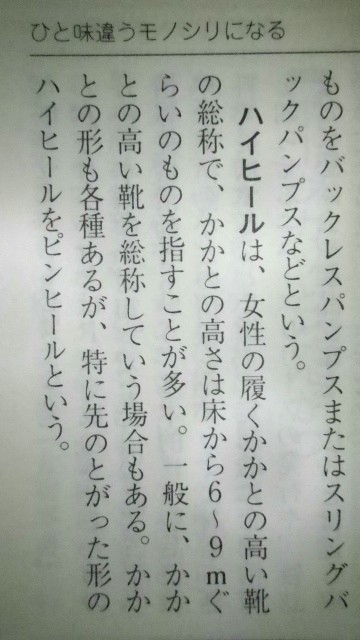 ひと味違うモノシリになる
ものをバックレスパンプスまたはスリングバ
ックパンプスなどという。
ハイヒールは、女性の履くかかとの高い靴
の総称で、かかとの高さは床から6〜9mぐ
らいのものを指すことが多い。一般に、かか
との高い靴を総称していう場合もある。かか
との形も各種あるが、特に先のとがった形の
ハイヒールをピンヒールという。